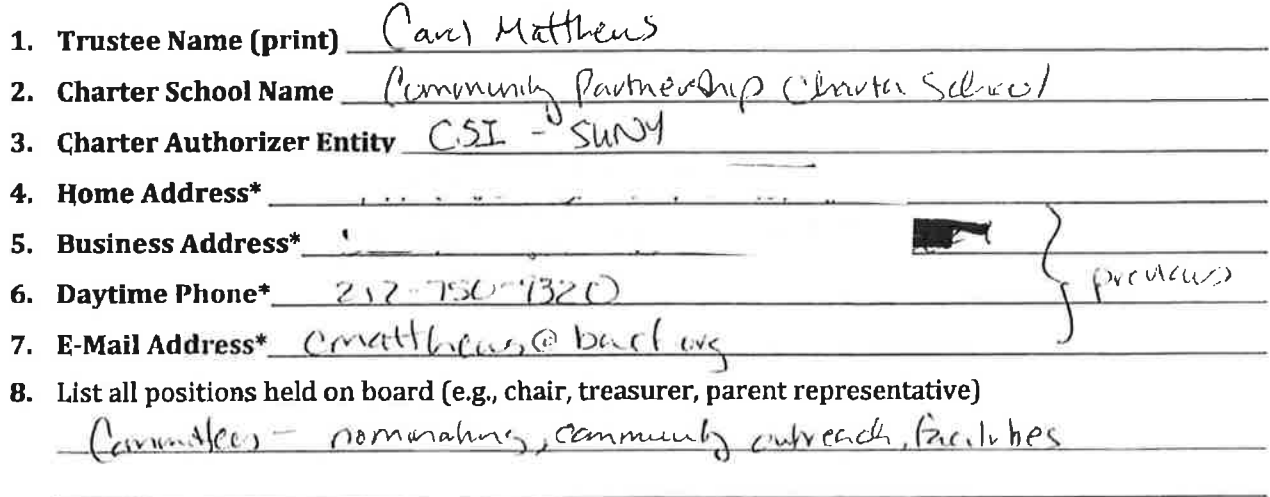 1. Trustee Name (print) Carol Matthews
2. Charter School Name Community Partnership Charter School
3. Charter Authorizer Entity CSI - SUNY
4. Home Address*
5. Business Address*
6. Daytime Phone* 212-750-9320 } previous
7. E-Mail Address* cmatthews@
8. List all positions held on board (e.g., chair, treasurer, parent representative)
Committees - nominating, community outreach, facilities